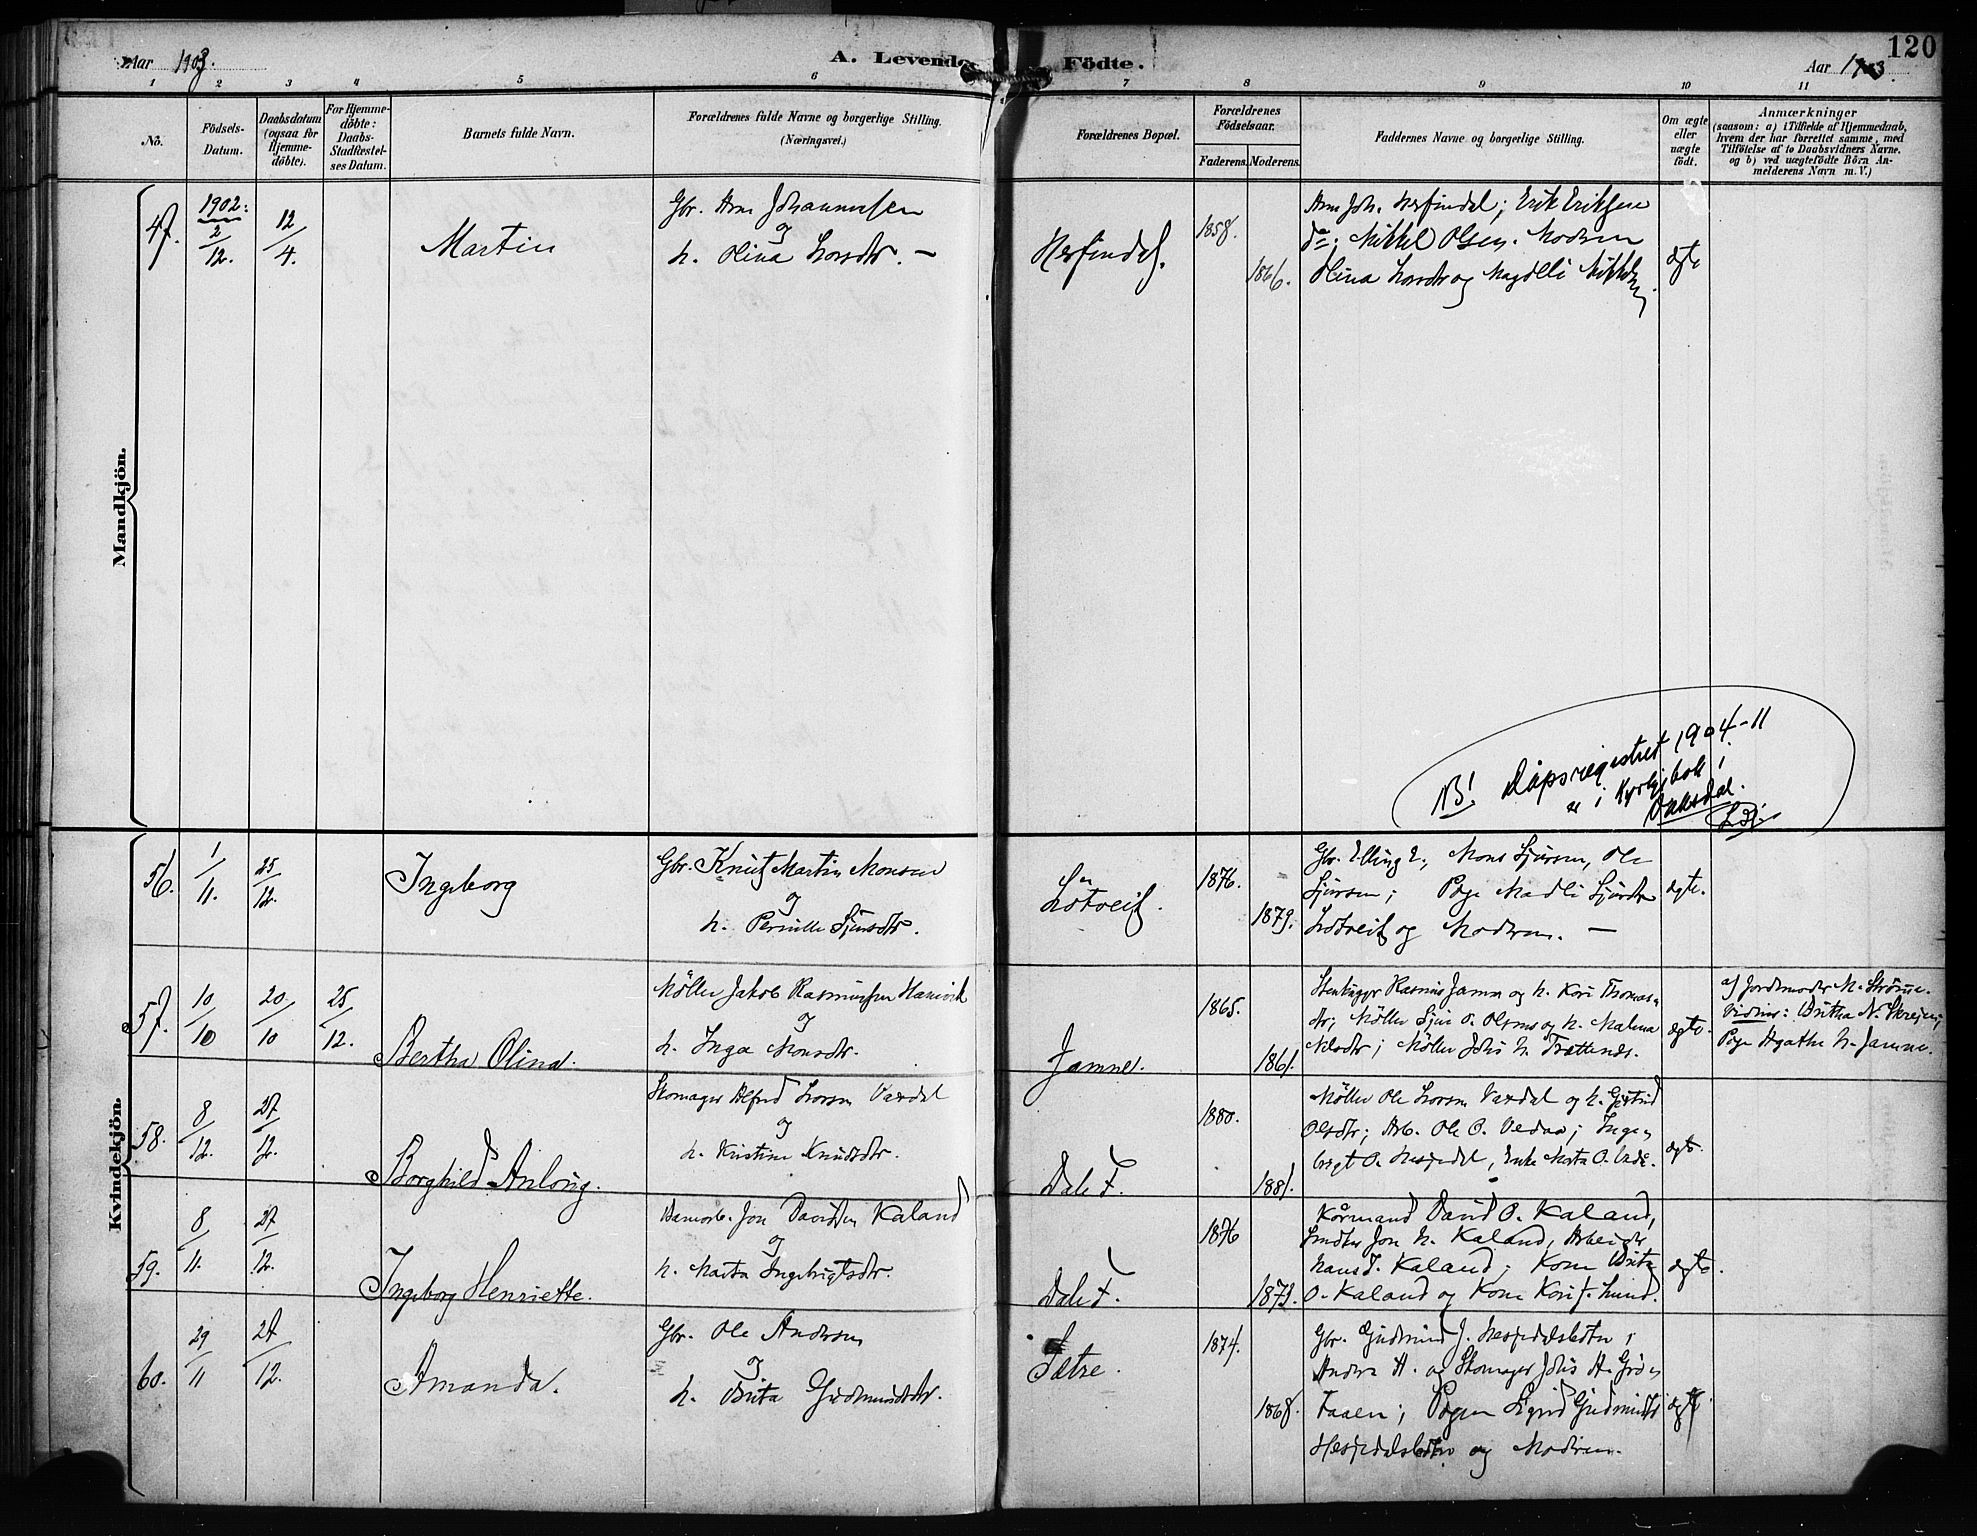 Aar 1903.
A. Levende
Födte.
Aar 1903
120
1 2 3 4 5 6 7 8 9 10 11
No.
Födsels-
Datum.
Daabsdatum
(ogsaa for
Hjemme-
döbte).
For Hjemme-
döbte:
Daabs-
Stadfæstel-
ses Datum.
Barnets fulde Navn.
Forældrenes fulde Navne og borgerlige Stilling.
(Næringsvei.)
Forældrenes Bopæl.
Forældrenes
Födselsaar.
Faderens.
Moderens.
Faddernes Navne og borgerlige Stilling.
Om ægte
eller
uægte
födt.
Anmærkninger
(saasom: a) i Tilfælde af Hjemmedaab,
hvem der har forrettet samme, med
Tilföielse af to Daabsvidners Navne.
og b) ved uægtefödte Börn An-
melderens Navn m. V.)
Mandkjön.
47.
1902:
2/12.
12/4.
Martin
Gbr. Arne Johannessen
og
h. Olina Larsdtr. –
Herfindal.
1858.
1866.
Arne Joh. Herfindal; Erik Eriksen
do; Mikkel Olsen. Modren
Olina Larsdtr og Magdeli
ægte
NB! Dåpsregistret 1904-11
er i kyrkjebok i
Vaksdal.
Kvindekjön.
56.
1/11.
25/12.
Ingeborg
Gbr. Knut Martin Monsen
og
h. Pernille Sjursdtr.
1876.
1879.
Gbr. Elling E., Mons Sjursen, Ole
Sjursen; Pige Madli Sjursdtr
og Modren. –
ægte.
57.
10/10
20/10
25/12.
Bertha Olina.
Möller Jakob Rasmussen
og
h. Inga Monsdtr.
Jamne.
1865.
1861.
Rasmus Jamne og h. Kari Thomas-
dtr; Möller Sjur O. Olsnes og h. Malena
Nilsdtr; Möller Johs N.
ægte.
af Jordmoder M. Strömme.
Vidner: Britha N.
Pige Agathe N. Jamne.
58.
8/12.
27/12.
Borghild Anlöug.
Skomager Alfred Larsen Vaxdal
og
h. Kristine Knudsdtr.
Dale F.
1880.
1881.
Möller Ole Larsen Vaxdal og h. Gjertrud
Olsdtr; Arb. Ole O. Vedaa; Inge-
brigt O. Hesjedal, Enke Marta O.
ægte.
59.
8/11.
27/12.
Ingeborg Henriette.
Jon Davidsen Kaland
og
h. Marta Ingebrigtsdtr.
Dale F.
1876
1873.
Kårmand David O. Kaland,
Jon N. Kaland, Arbeider
Hans J. Kaland; Kone Brita
O. Kaland og Kone Kari J. Lund.
ægte.
60.
29/11
27/12.
Amanda.
Gbr. Ole Andersen
og
h. Brita Gudmundsdtr.
Sætre.
1874.
1868.
Gbr. Gudmund J. Hesjedalsbotn,
Anders A. og Skomager Johs A.
Faaen; Pigen Sigrid Gudmunds
Hesjedalsbotn og Modren.
ægte